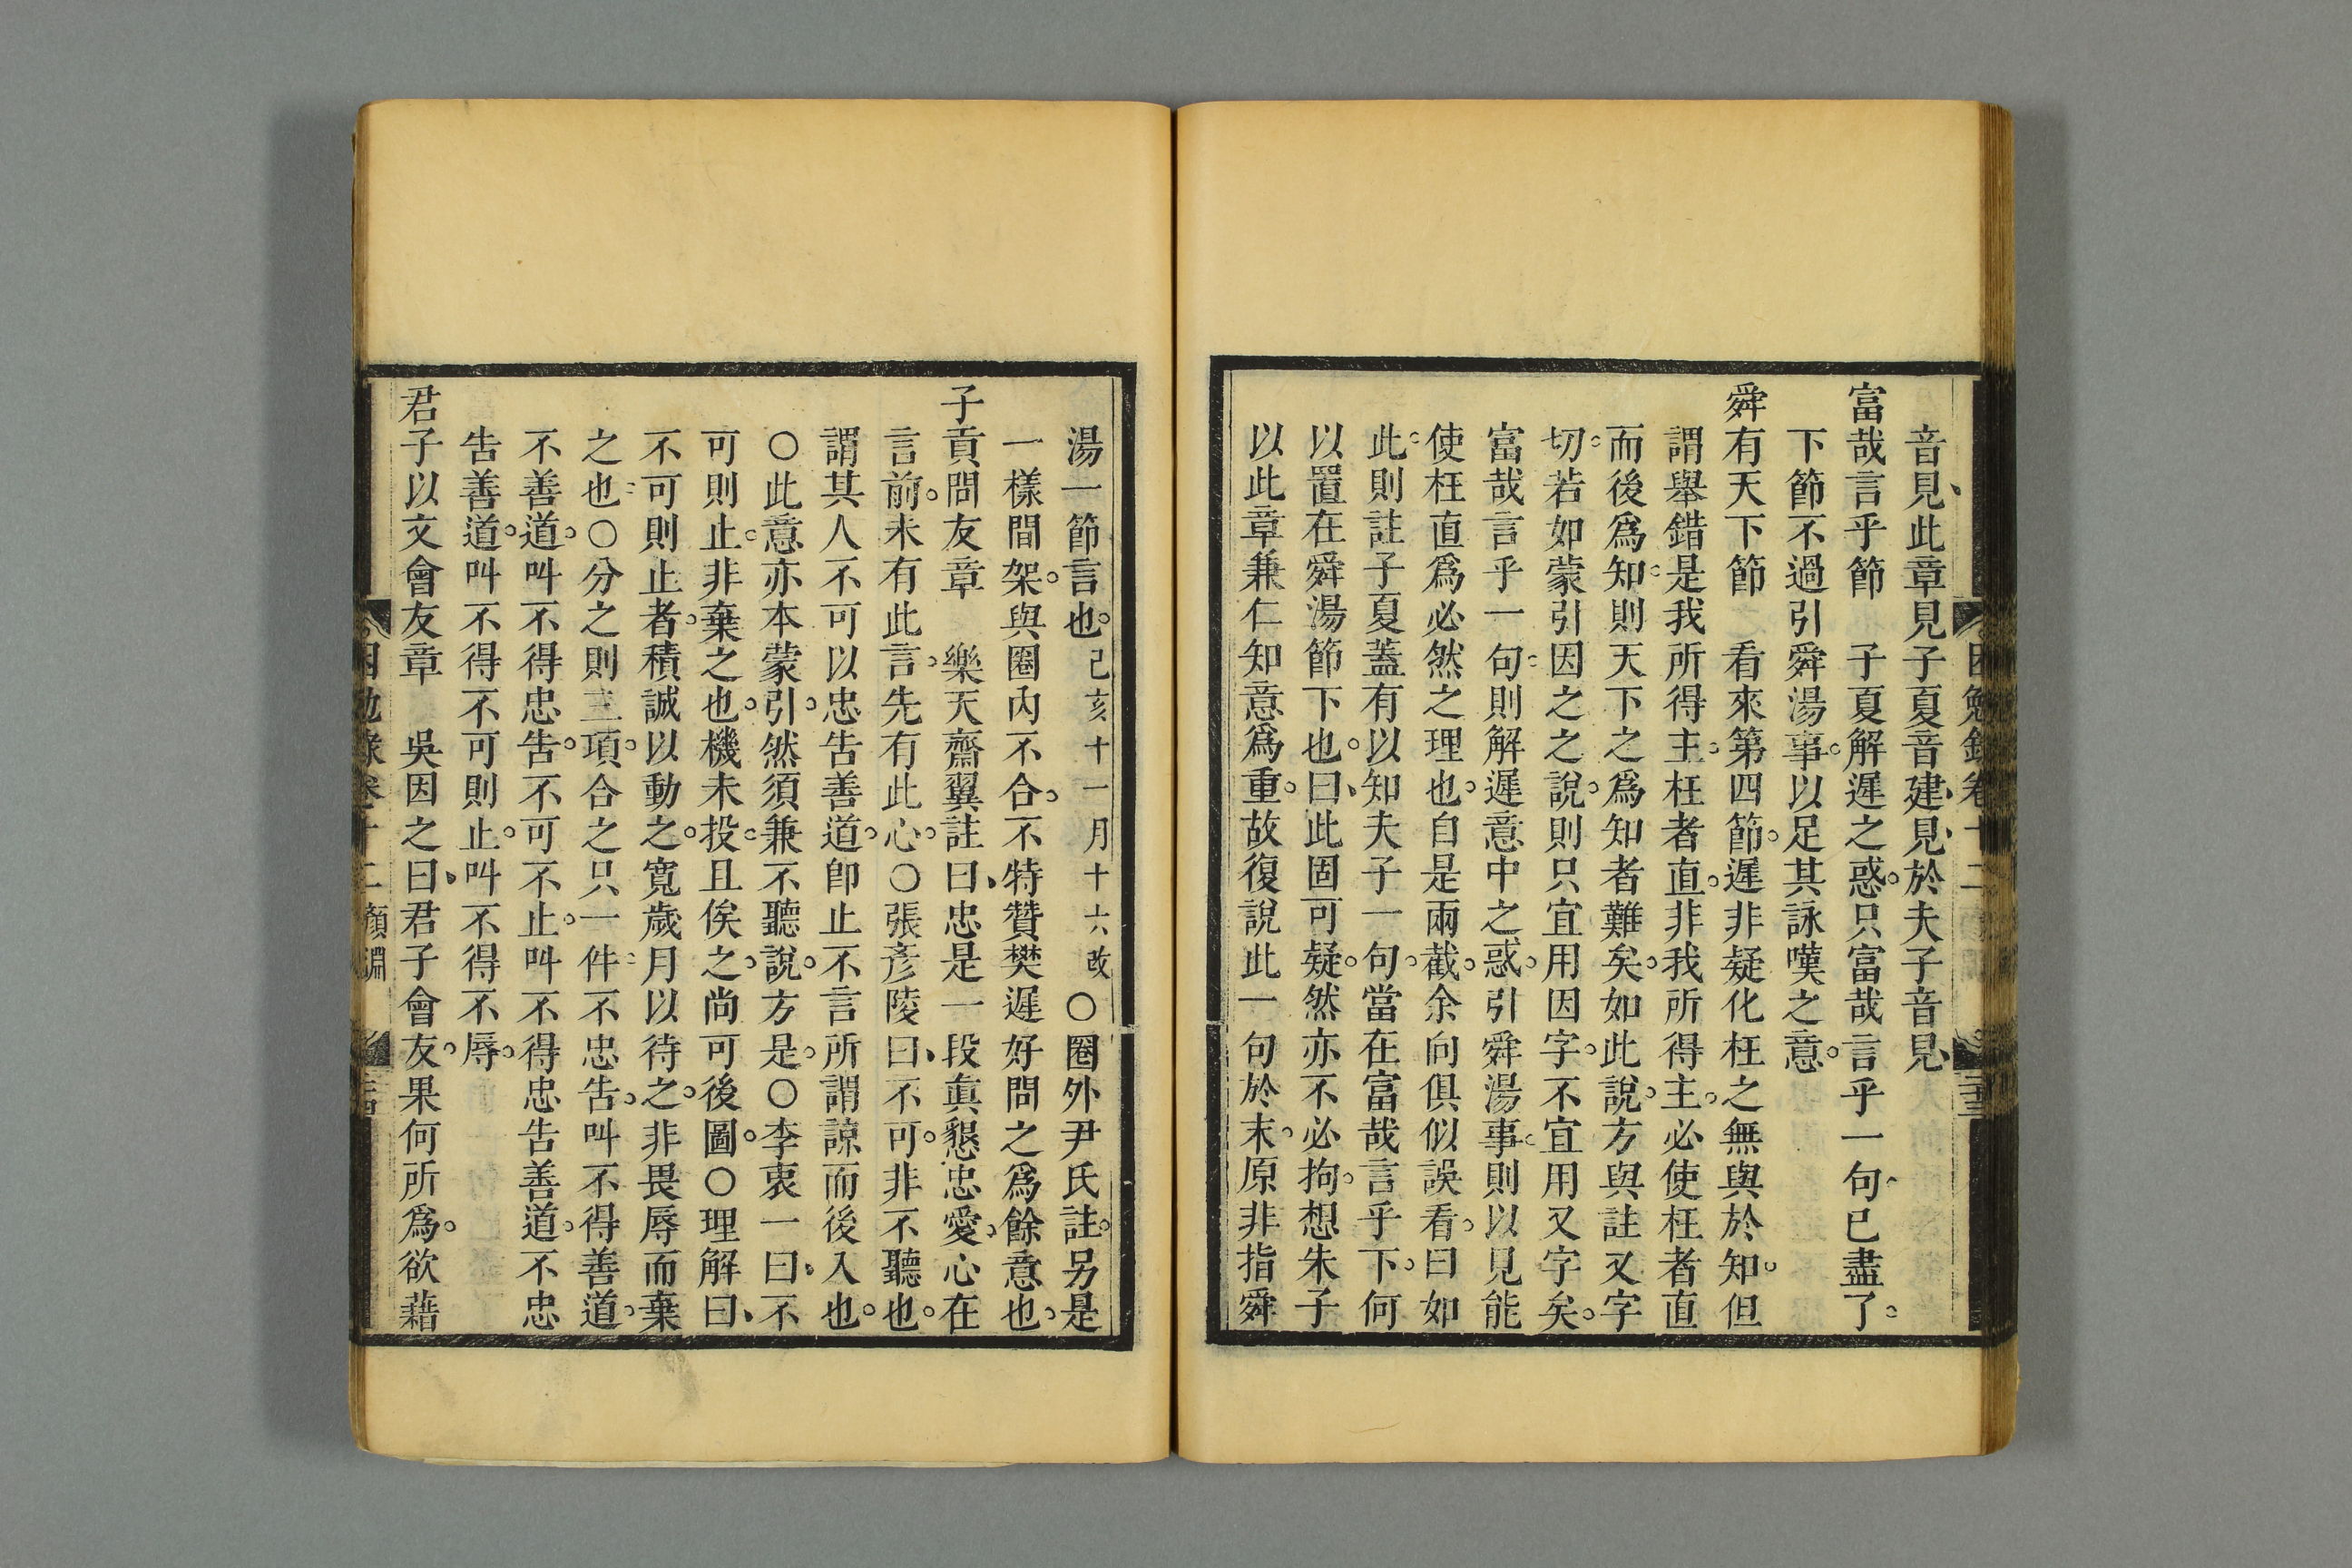 音見、此章見子夏音建、見、於夫子音見、
富哉言乎節　子夏解遲之惑。只富哉言乎一句已盡了。
下節不過引舜湯事。以足其詠嘆之意。
舜有天下節　看來第四節。遲非疑化枉之無與於知。但
謂舉錯是我所得主。枉者直。非我所得主。必使枉者直
而後爲知。則天下之爲知者難矣。如此說。方與註又字
切。若如蒙引因之之說。則只宜用因字。不宜用又字矣。
富哉言乎一句。則解遲意中之惑。引舜湯事。則以見能
使枉直爲必然之理也。自是兩截。余向俱似誤看。曰如
此。則註子夏蓋有以知夫子一句。當在富哉言乎下。何
以置在舜湯節下也。曰、此固可疑。然亦不必拘。想朱子
以此章兼仁知意爲重。故復說此一句於末。原非指舜
湯一節言也。己亥十一月十六改○圈外尹氏註。另是
一樣間架。與圈內不合。不特贊樊遲好問之爲餘意也。
子貢問友章　樂天齋翼註曰、忠是一段眞懇忠愛。心在
言前。未有此言。先有此心。○張彦陵曰、不可。非不聽也。
謂其人不可以忠告善道。卽止不言。所謂諒而後入也。
○此意亦本蒙引。然須兼不聽說。方是。○李衷一曰、不
可則止。非棄之也。機未投。且俟之。尚可後圖。○理解曰、
不可則止者。積誠以動之。寬歲月以待之。非畏辱而棄
之也。○分之則三項。合之只一件。不忠告。叫不得善道。
不善道。叫不得忠告。不可不止。叫不得忠告善道。不忠
告善道。叫不得不可則止。叫不得不辱。
君子以文會友章　吳因之曰、君子會友。果何所爲。欲藉